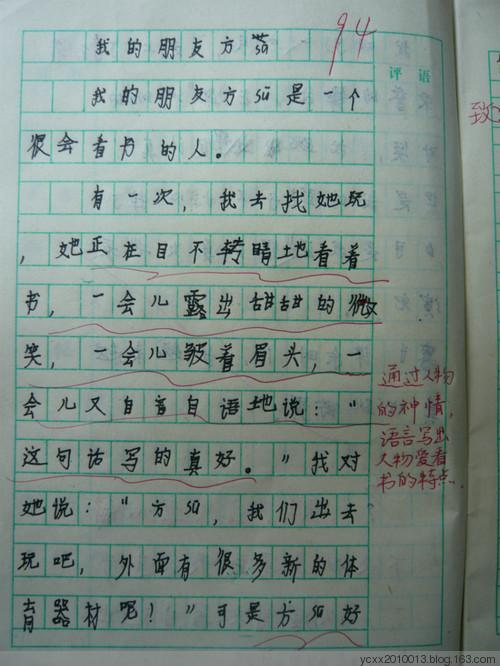 94
我的朋友方
评语
我的朋友方 是一个
很会看书的人。
有一次，我去找她玩
，她正在目不转睛地看着
书，一会儿露出甜甜的微
笑，一会儿皱着眉头，一
会儿又自言自语地说：“
这句话写的真好。”我对
她说：“方 ，我们出去
玩吧，外面有很多新的体
育器材呢！”可是方 好
通过人物
的神情，
语言写出
人物爱看
书的特点.
致
ycxx2010013.blog.163.com